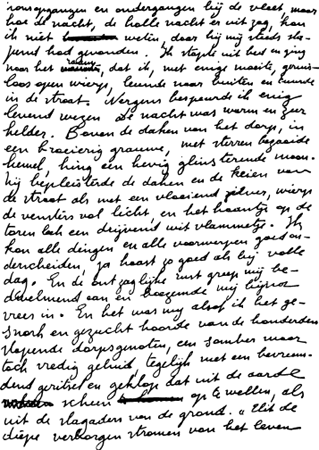 zonsopgangen en ondergangen bij de vleet, maar
hoe de nacht, de holle nacht er uit zag, kon
ik niet weten, daar hij mij steeds sla-
pend had gevonden. Ik stapte uit bed en ging
naar het raam, dat ik, met enige moeite, geruis-
loos open wierp, leunde naar buiten en tuurde
in de straat. Nergens bespeurde ik enig
levend wezen. De nacht was warm en zeer
helder. Boven de daken van het dorp, in
een broeierig grauwe, met sterren bezaaide
hemel, hing een hevig glinsterende maan.
Hij bepleisterde de daken en de keien van
de straat als met een vloeiend zilver, wierp
de vensters vol licht, en het haantje op de
toren leek een drijvend wit vlammetje. Ik
kon alle dingen en alle voorwerpen goed on-
derscheiden, ja haast zo goed als bij volle
dag. En de ontzaglijke rust greep mij be-
duelmend aan en joegende mij bijna
vrees in. En het was mij alsof ik het ge-
snork en gezucht hoorde van de honderden
slapende dorpsgenoten, een somber maar
toch vredig geluid, tegelijk met een bevreem-
dend geritsel en geklop dat uit de aarde
scheen op te wellen, als
uit de slagaders van de grond. "Uit de
diepe verborgen stromen van het leven